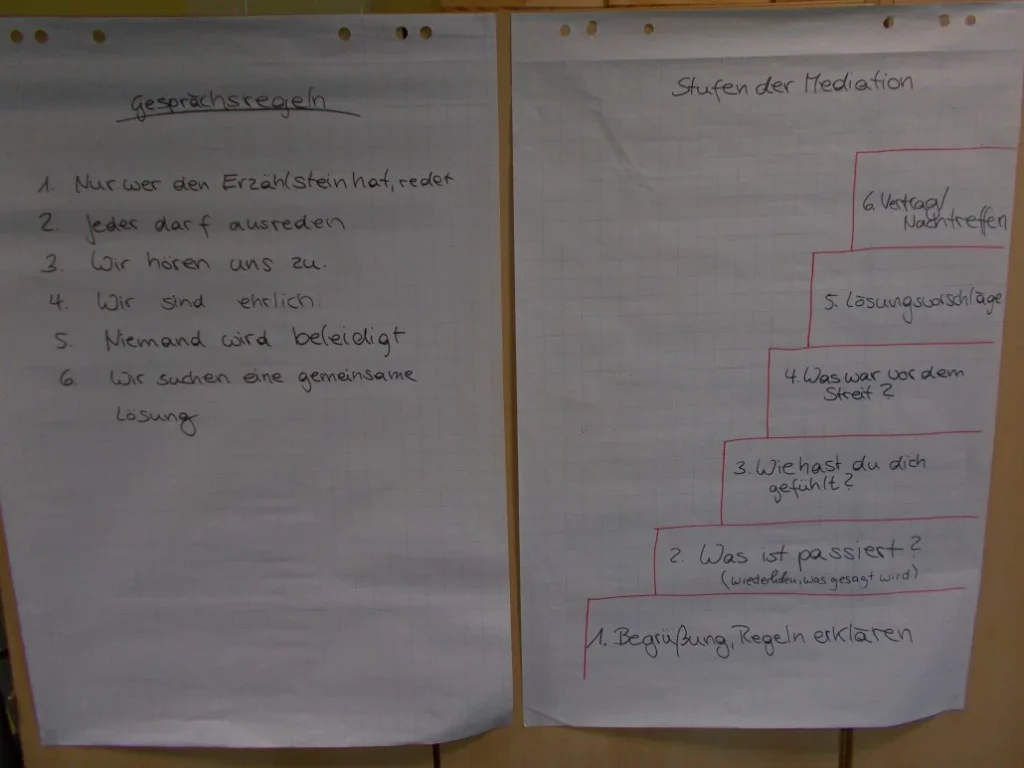 Gesprächsregeln
1. Nur wer den Erzählstein hat, redet
2. Jeder darf ausreden
3. Wir hören uns zu.
4. Wir sind ehrlich.
5. Niemand wird beleidigt
6. Wir suchen eine gemeinsame
Lösung
Stufen der Mediation
6. Vertrag/
Nachtreffen
5. Lösungsvorschläge
4. Was war vor dem
Streit?
3. Wie hast du dich
gefühlt?
2. Was ist passiert?
(was gesagt wird)
1. Begrüßung, Regeln erklären